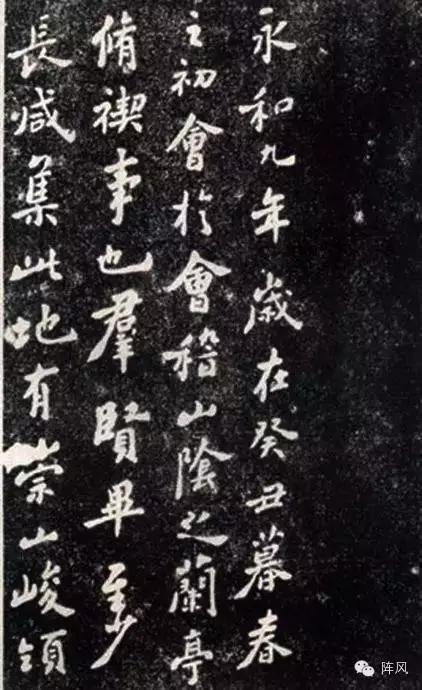 永和九年歲在癸丑暮春
之初會於會稽山陰之蘭亭
脩禊事也羣賢畢至少
長咸集此地有崇山峻領
阵风